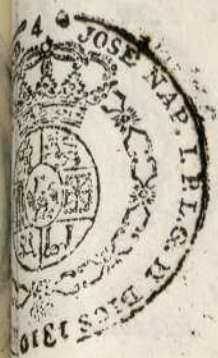 4 JOSE NAP. I. P. L. G. D DIOS 1810